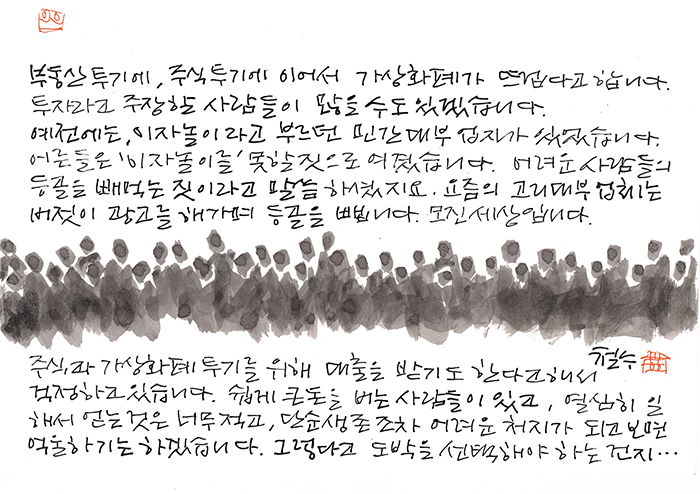 부동산 투기에, 주식투기에 이어서 가상화폐가 뜨겁다고 합니다.
투자라고 주장할 사람들이 많을 수도 있겠습니다.
예전에는, 이자놀이라고 부르던 민간대부업자가 있었습니다.
어른들은 '이자놀이를' 못할 짓으로 여겼습니다. 어려운 사람들의
등골을 빼먹는 짓이라고 말씀하셨지요. 요즘의 고리대부업체는
버젓이 광고를 해가며 등골을 뺍니다. 모진 세상입니다.
철수
주식과 가상화폐 투기를 위해 대출을 받기도 한다고 해서
걱정하고 있습니다. 쉽게 큰돈을 버는 사람들이 있고, 열심히 일
해서 얻는 것은 너무 적고, 단순생존조차 어려운 처지가 되고 보면
억울하기는 하겠습니다. 그렇다고 도박을 선택해야 하는 건지…